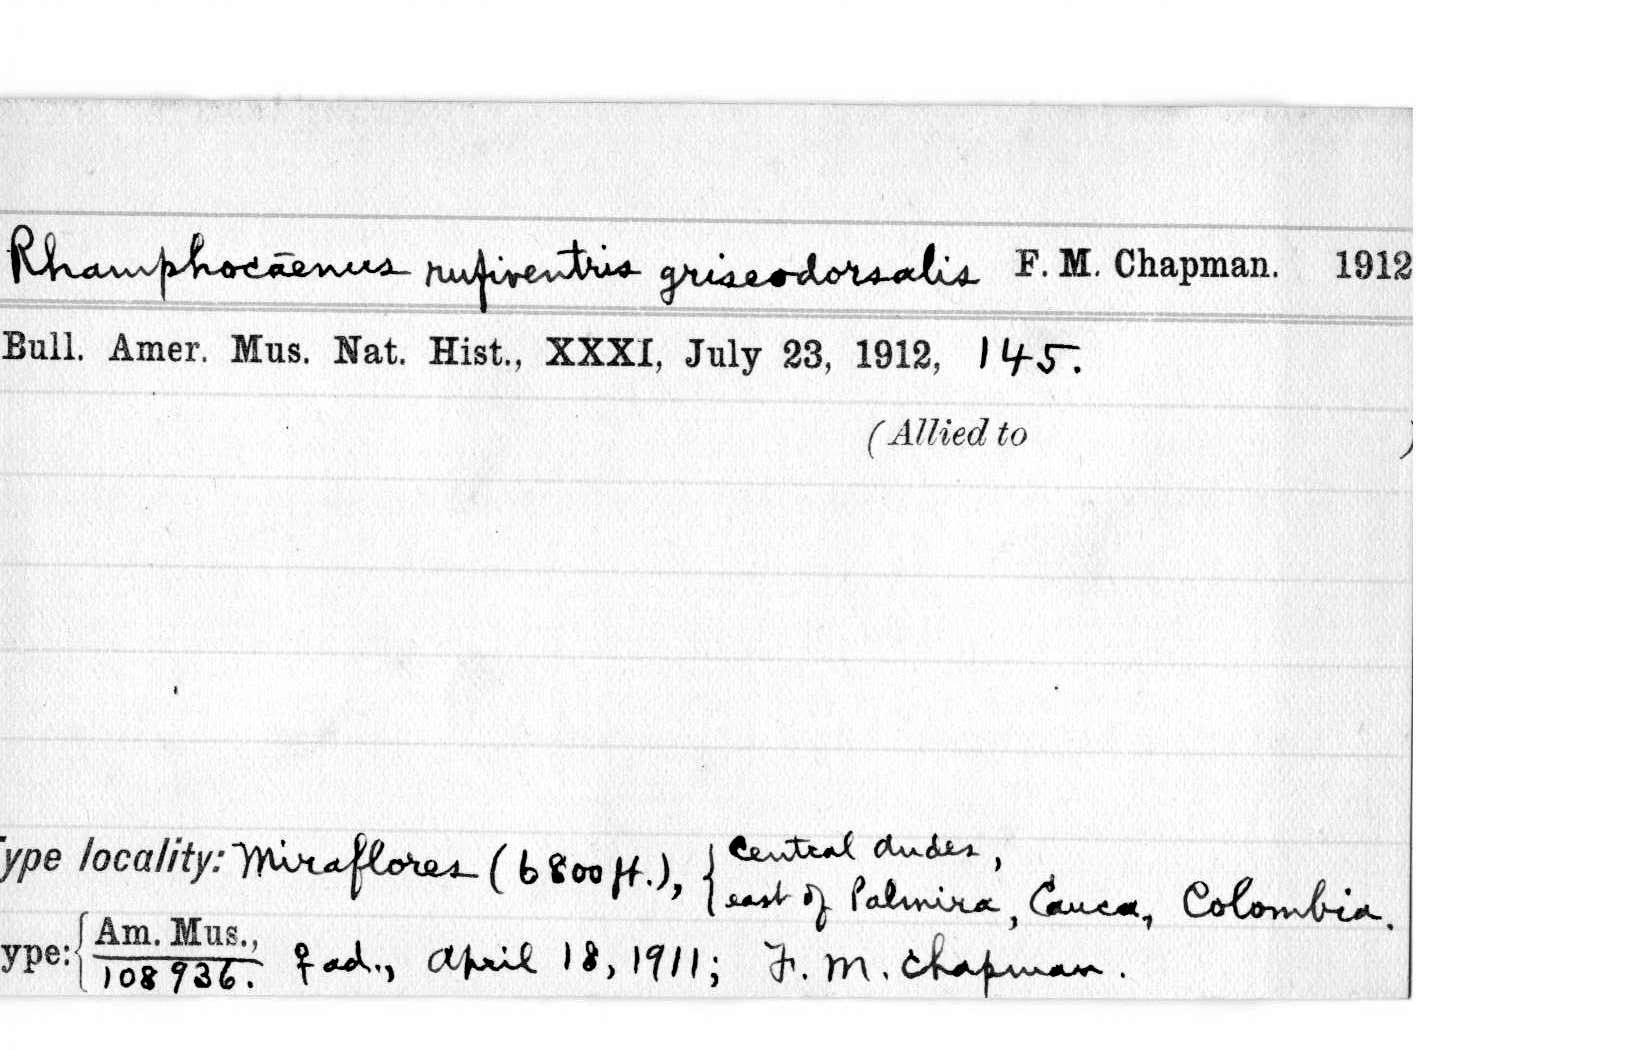 Rhamphocaenus rufiventris griseodorsalis F. M. Chapman. 1912
Bull. Amer. Mus. Nat. Hist., XXXI, July 23, 1912, 145.
(Allied to )
Type locality: Miraflores (6800 ft.), { Central Andes,
east of Palmira, Cauca, Colombia.
ype: { Am. Mus.,
108936. ♀ ad., April 18, 1911; F. M. Chapman.